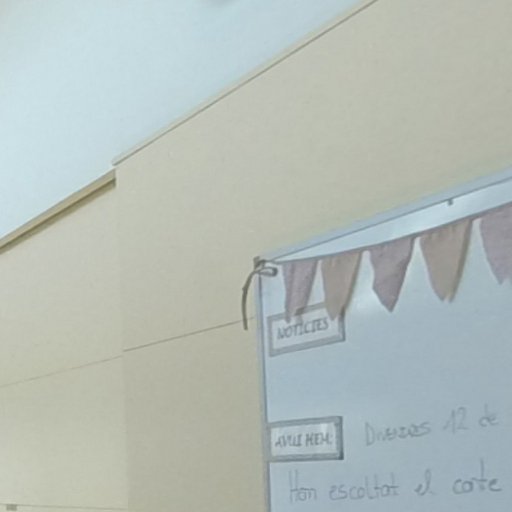 NOTÍCIES
AVUI HEM:
Divendres 12 de
Hem escoltat el conte